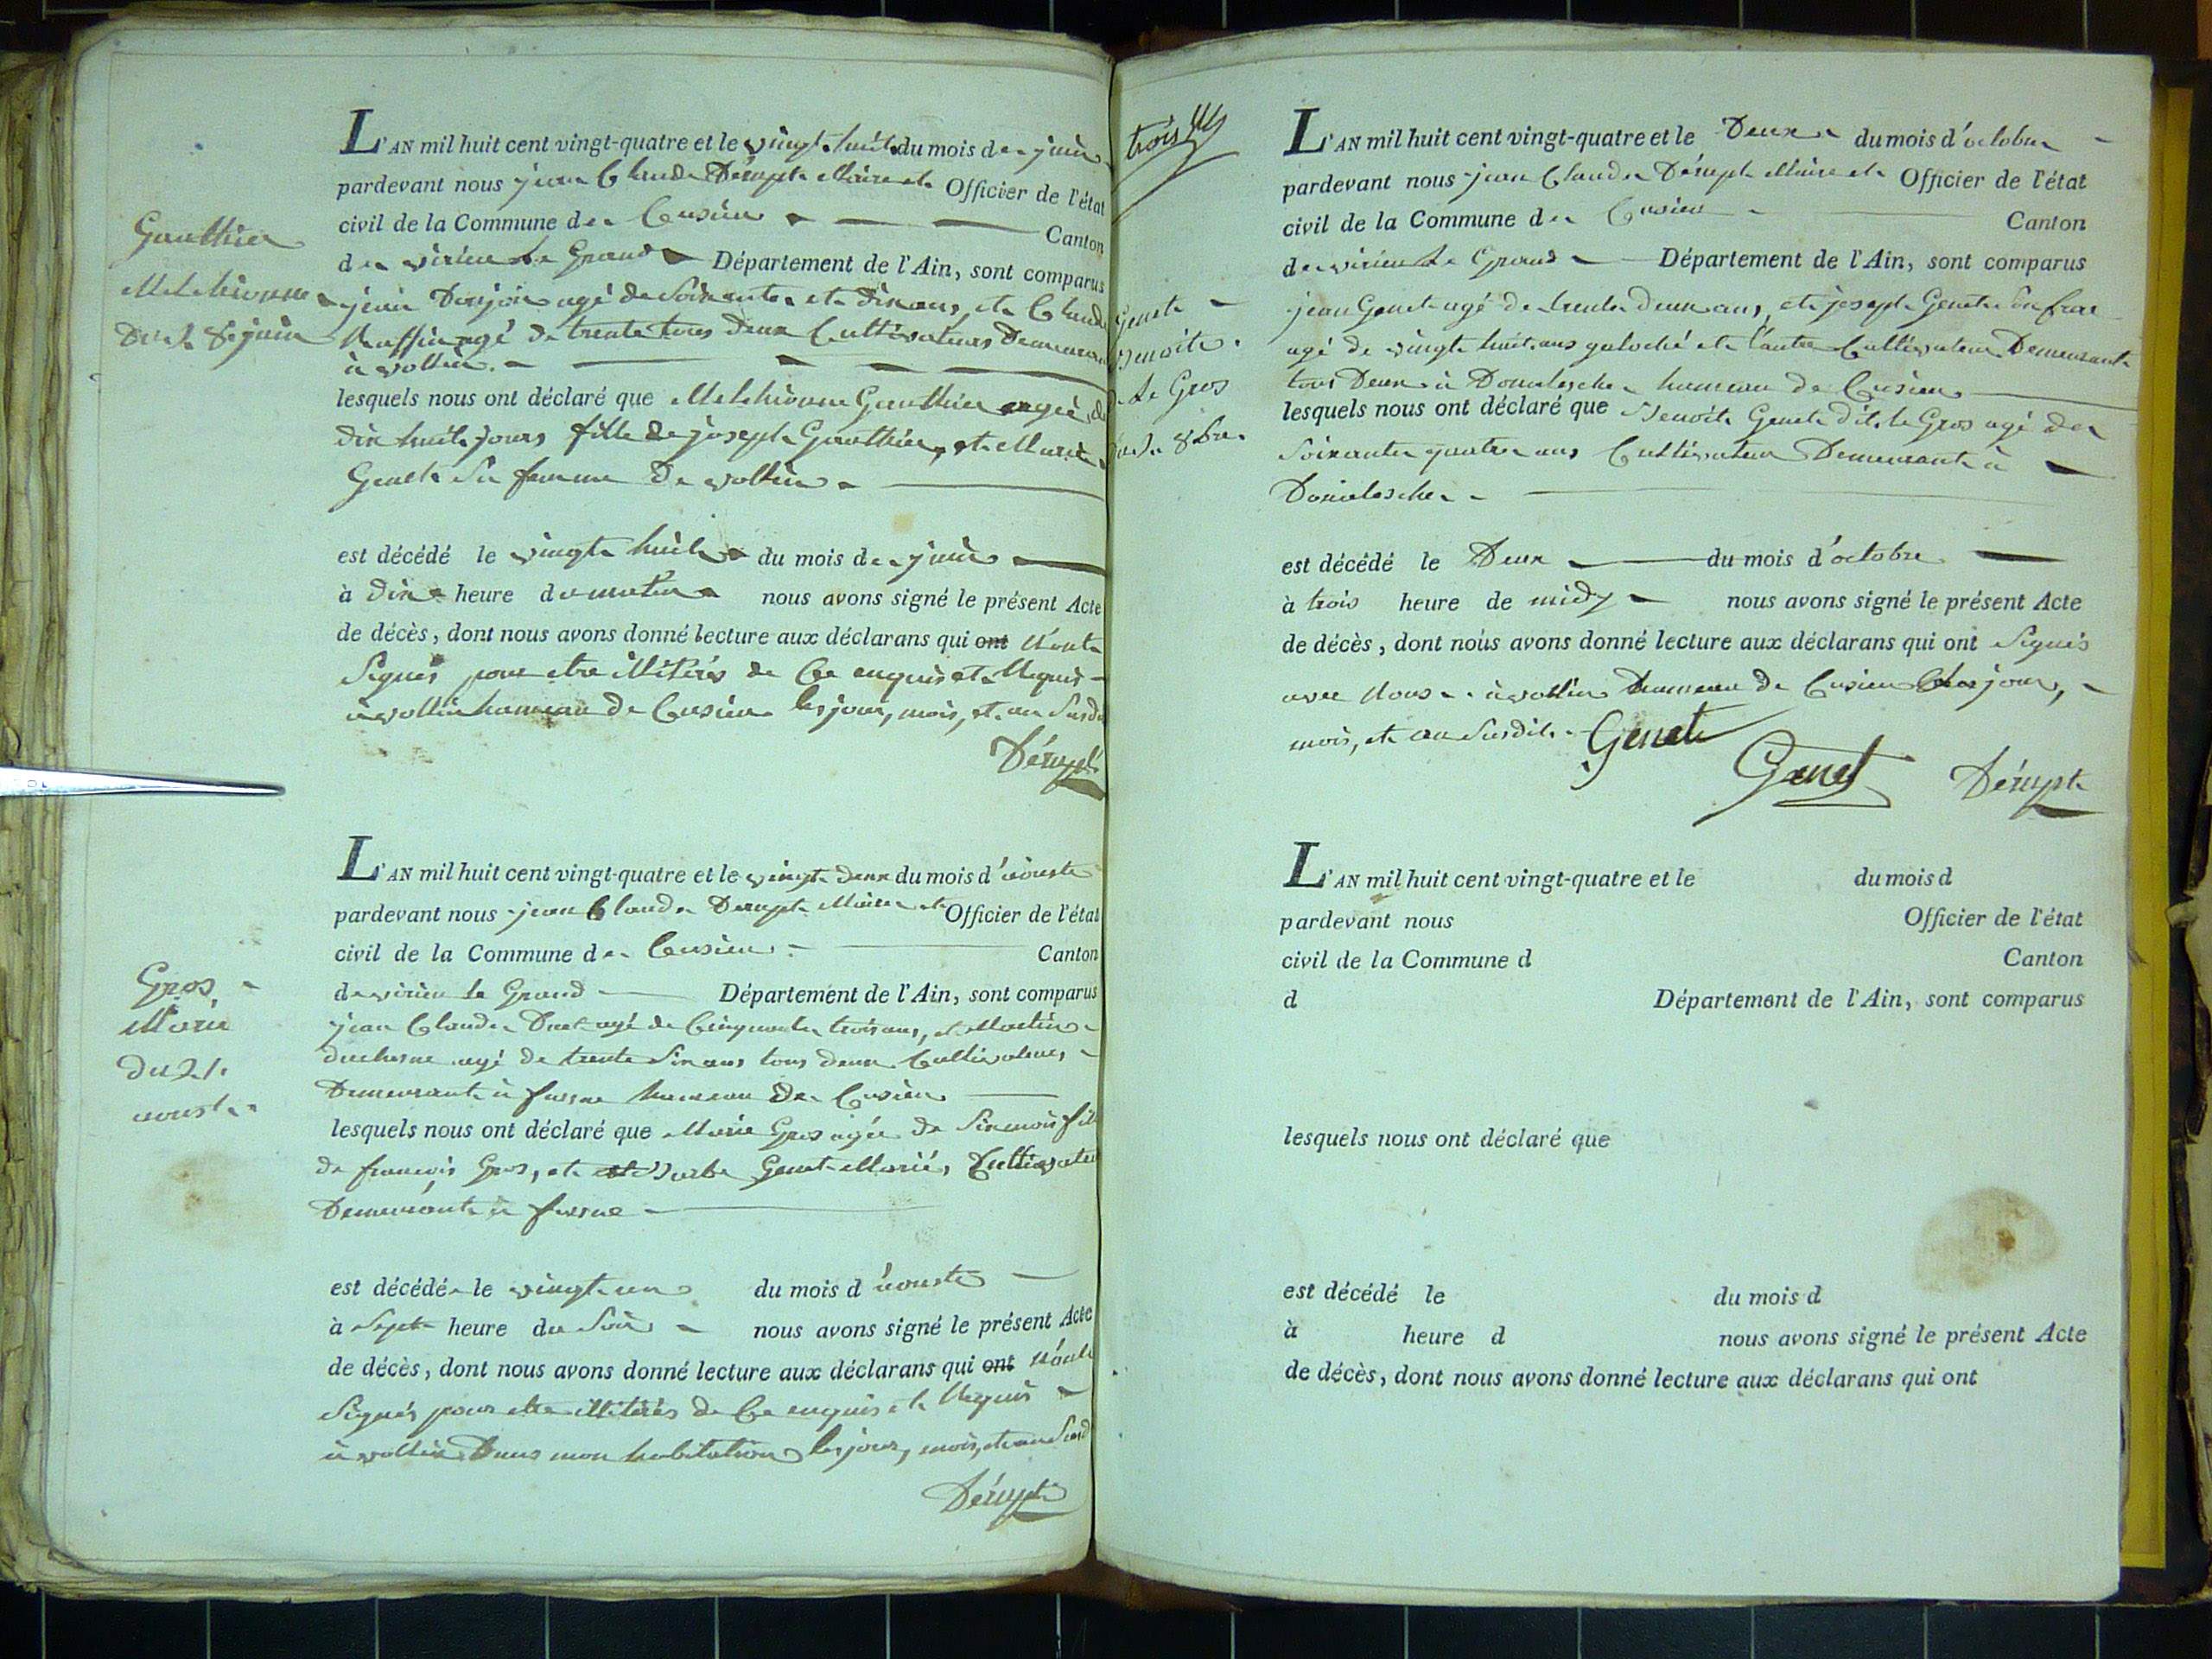 L'AN mil huit cent vingt-quatre et le vingt huit du mois de juin
pardevant nous jean Claude Dérupt Maire et Officier de l'état
civil de la Commune de Cusieu Canton
de virieu le Grand Département de l'Ain, sont comparus
jean Donjoin agé de Soixante et dix ans, et Claude
Ruffin agé de trente tous deux Cultivateurs Demeurant
à vollien.
lesquels nous ont déclaré que Melchionne Gauthier agée de
dix huit jours fille de joseph Gauthier, et Marie
Genet Sa femme De vollien
est décédé le vingt huit du mois de juin
à dix heure du matin nous avons signé le présent Acte
de décès, dont nous avons donné lecture aux déclarans qui ont n'ont
Signés pour etre illitérés de Ce enquis et Requis
à vollien hameau de Cusieu les jour, mois, et an Susdit
Dérupt
Gauthier
Melchionne
Du 28 juin
L'AN mil huit cent vingt-quatre et le vingt deux du mois d'aoust
pardevant nous jean Claude Derupt Maire et Officier de l'état
civil de la Commune de Cusieu Canton
de virieu le Grand Département de l'Ain, sont comparus
jean Claude Duet agé de Cinquante trois ans, et Martin
duchesne agé de trente Six ans tous deux Cultivateurs,
Demeurant à fusne hameau De Cusieu
lesquels nous ont déclaré que Marie Gros agée de Six mois fille
de françois Gros, et Barbe Genet Mariés, Cultivateurs
Demeurant à fusne
est décédé le vingt un du mois d aoust
à Sept heure du Soir nous avons signé le présent Acte
de décès, dont nous avons donné lecture aux déclarans qui ont n'ont
Signés pour etre illitérés de Ce enquis et Requis
à vollien Dans mon habitation les jour, mois, et an Susdit
Dérupt
Gros
Marie
du 21
aoust
trois
L'AN mil huit cent vingt-quatre et le Deux du mois d'octobre
pardevant nous jean Claude Dérupt Maire et Officier de l'état
civil de la Commune de Cusieu Canton
de virieu le Grand Département de l'Ain, sont comparus
jean Genet agé de trente deux ans, et joseph Genet Son frere
agé de vingt huit ans galoché et l'autre Cultivateur Demeurant
tous Deux à Domelesche hameau de Cusieu
lesquels nous ont déclaré que Benoit Genet dit le Gros agé de
Soixante quatre ans Cultivateur Demeurant à
Domelesche
est décédé le Deux du mois d'octobre
à trois heure de midy nous avons signé le présent Acte
de décès, dont nous avons donné lecture aux déclarans qui ont Signés
avec Nous à vollien hameau de Cusieu les jour,
mois, et an Susdit. Genet
Genet Dérupt
Genet
Benoit
le Gros
8bre
L'AN mil huit cent vingt-quatre et le du mois d
pardevant nous Officier de l'état
civil de la Commune d Canton
d Département de l'Ain, sont comparus
lesquels nous ont déclaré que
est décédé le du mois d
à heure d nous avons signé le présent Acte
de décès, dont nous avons donné lecture aux déclarans qui ont